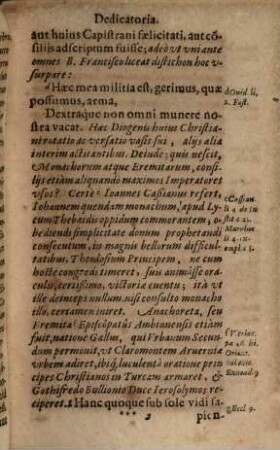 Dedicatoria.
aut huius Capistrani fælicitati, aut cō-
silijs adscriptum fuisse; adeò ut uni ante
omnes B. Francisco liceat distichon hoc v-
surpare:
Hæc mea militia est, gerimus, quæ
possumus, arma,
Dextraque non omni munere no-
stra vacat. Hac Diogenis huius Christia-
ni rotatio ac versatio vasis sui, alijs alia
interim actitantibus. Deinde: quis nescit,
Monachorum atque Eremitarum, consi-
lijs etiam aliquando maximos Imperatores
vsos? Certè Ioannes Casianus refert,
Iohannem quendam monachum, apud Ly-
cum Thebaidis oppidum commorantem, o-
bedientiæ simul dotem prophetandi
consecutum, in magnis bellorum difficul-
tatibus, Theodosium Principem, ne cum
hoste congredi timeret, sui animasse oracu-
lo; certissimo, victoria euentu; ità vt
ille deinceps nullum, nisi consulto monacho
illo, certamen iniret. Anachoreta, seu
Eremita Episcopatus Ambianensis etiam
fuit, natione Gallus, qui Vrbanum Secun-
dum permouit, vt Claromontem Aruerniæ
vrbem adiret, ibíq; luculentâ oratione prin-
cipes Christianos in Turcam armaret, &
Gothifredo Bullionio Duce Ierosolymos re-
ciperet. Hanc quoque sub sole vidi sa-
pien-
d Ouid. li.
2. Fast.
e Cassian